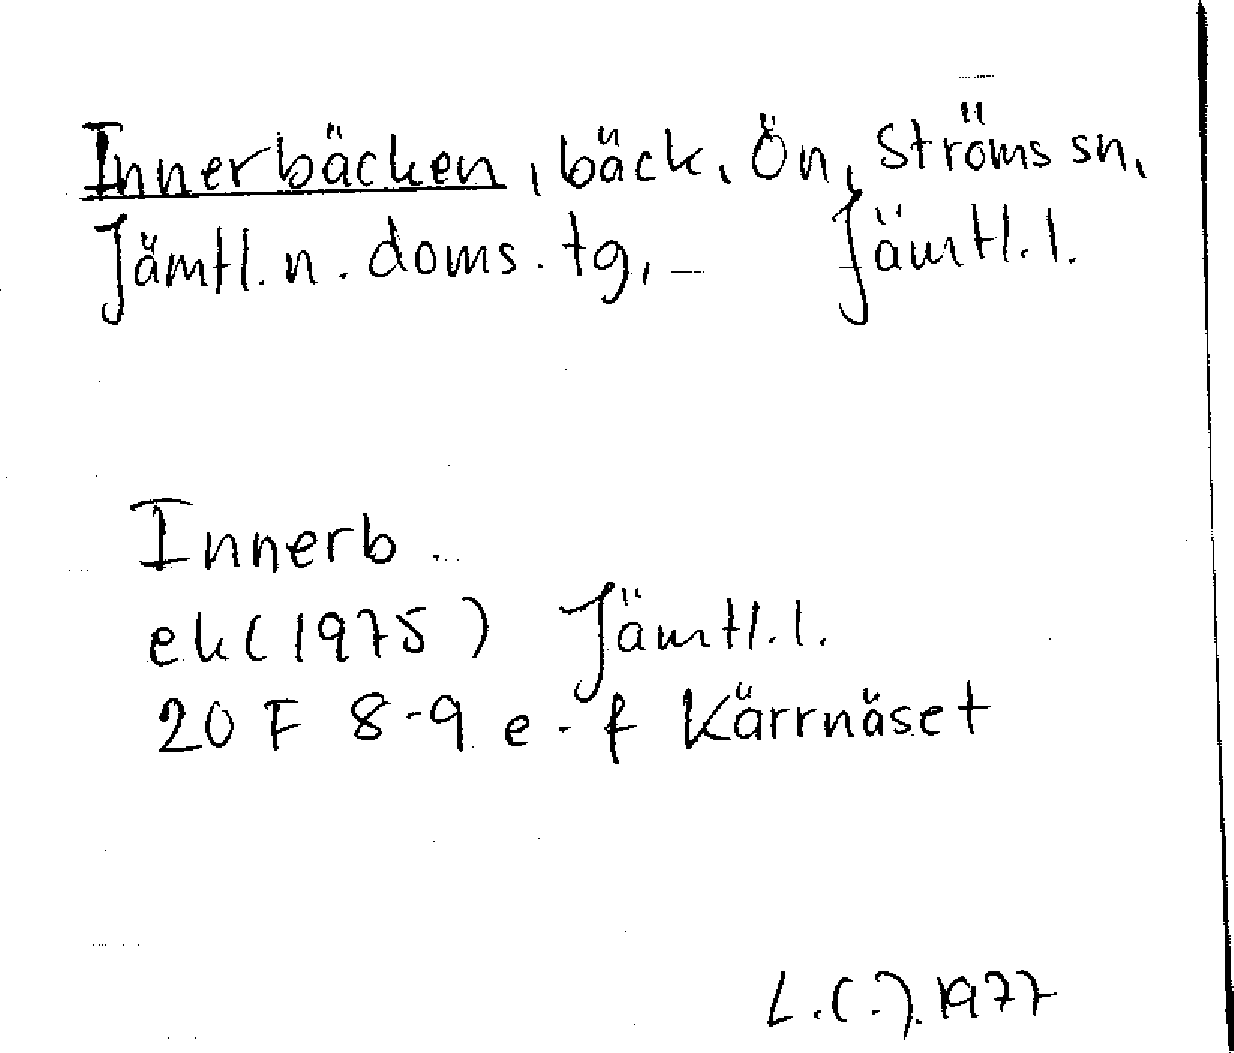 Innerbäcken, bäck, Ön, Ströms sn,
Jämtl. n. doms. tg, Jämtl. l.
Innerb
ek (1975) Jämtl. l.
20 F 8-9 e-f Kärrnäset
L.(.). 1977